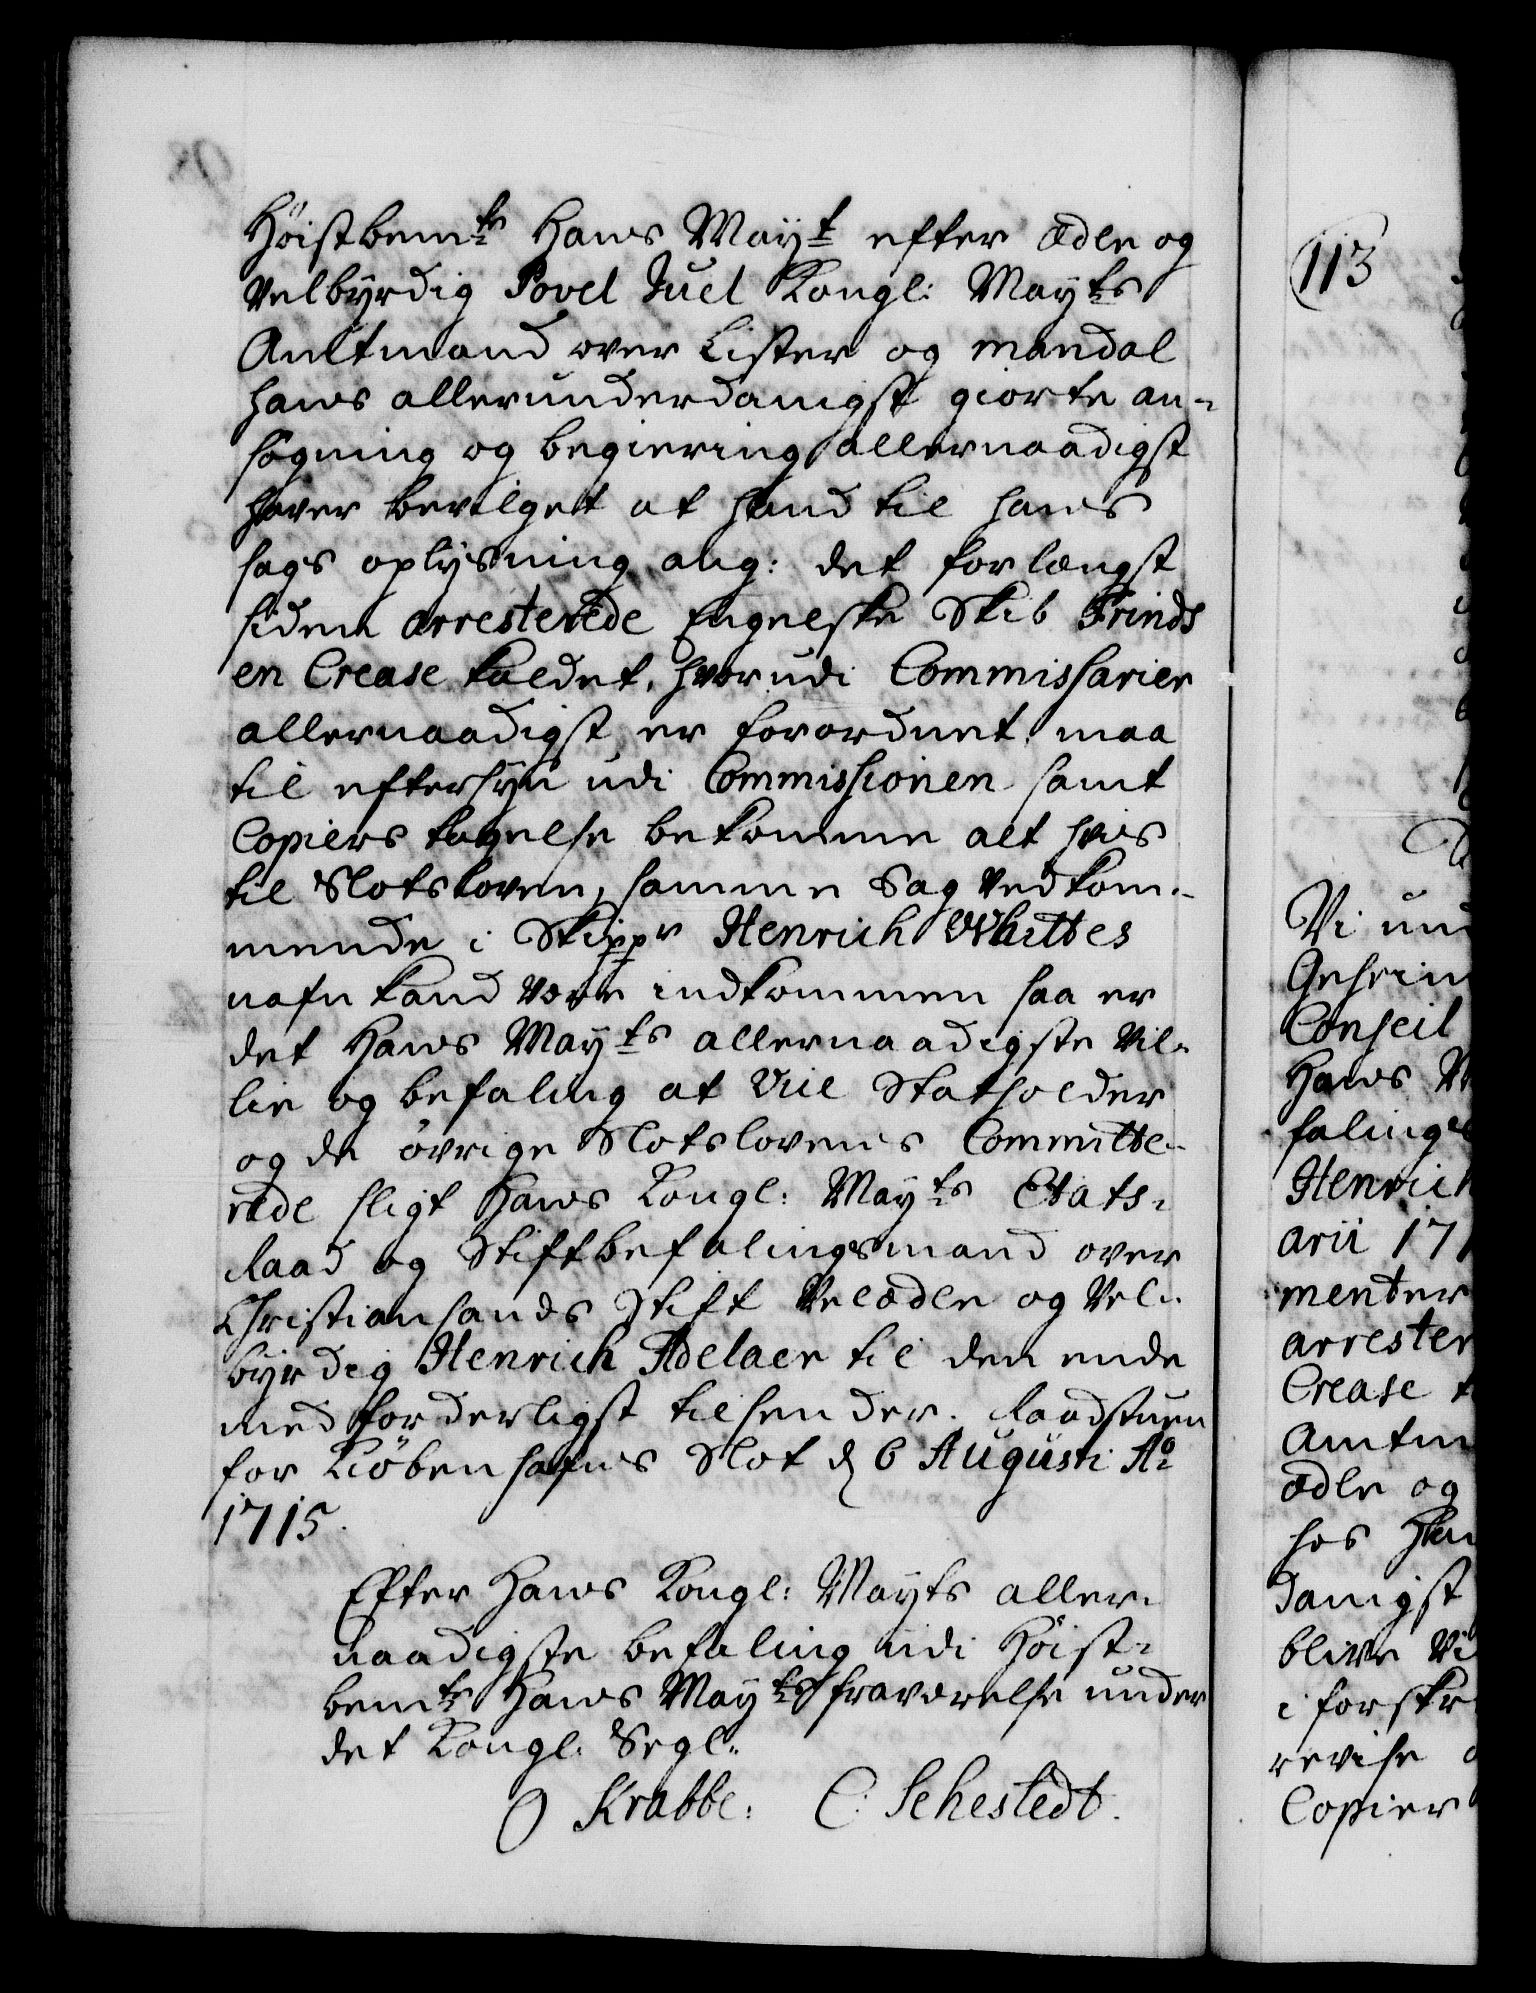 Höistbemte Hans Mayt efter ædle og
Velbyrdig Povel Juel Kongl: Mayts
Ambtmand over Lister og Mandal
hans allerunderdanigst giorte an-
søgning og begiering allernaadigst
haver bevilget at hand til hans
sags oplysning ang: det forlængst
siden arresterede Engelske Skib Frinds
en Crease kaldet, hvorudi Commissarier
allernaadigst er forordnet, maa
til eftersyn udi Commissionen samt
Copiers tagelse bekomme alt hvis
til Slotsloven, samme Sag vedkom-
mende i Skippr Henrich Whittes
nafn kand være indkommen saa er
det Hans Mayts allernaadigste Vil-
lie og befaling at Viie Statholder
og de övrige Slotslovens Committe-
rede sligt Hans Kongl: Mayts Etats-
Raad og Stiftbefalingsmand over
Christiansands Stift Velædle og Vel-
byrdig Henrich Adelaer til den ende
med forderligst tilsender. Raadstuen
for Kiöbenhafns Slot d 6 Augusti Ao
1715.
Efter Hans Kongl: Mayts aller-
naadigste befaling udi Höist-
bemte Hans Mayts fraværelse under
det Kongl: Segl.
O Krabbe. C: Sehestedt.
113
Vi und
Geheim
Conseil
Hans M
faling
Henrich
arii 171
menter
arrester
Crease
Amtm
ædle og
hos Han
danigst
blive Vi
i forskr
revise
Copier